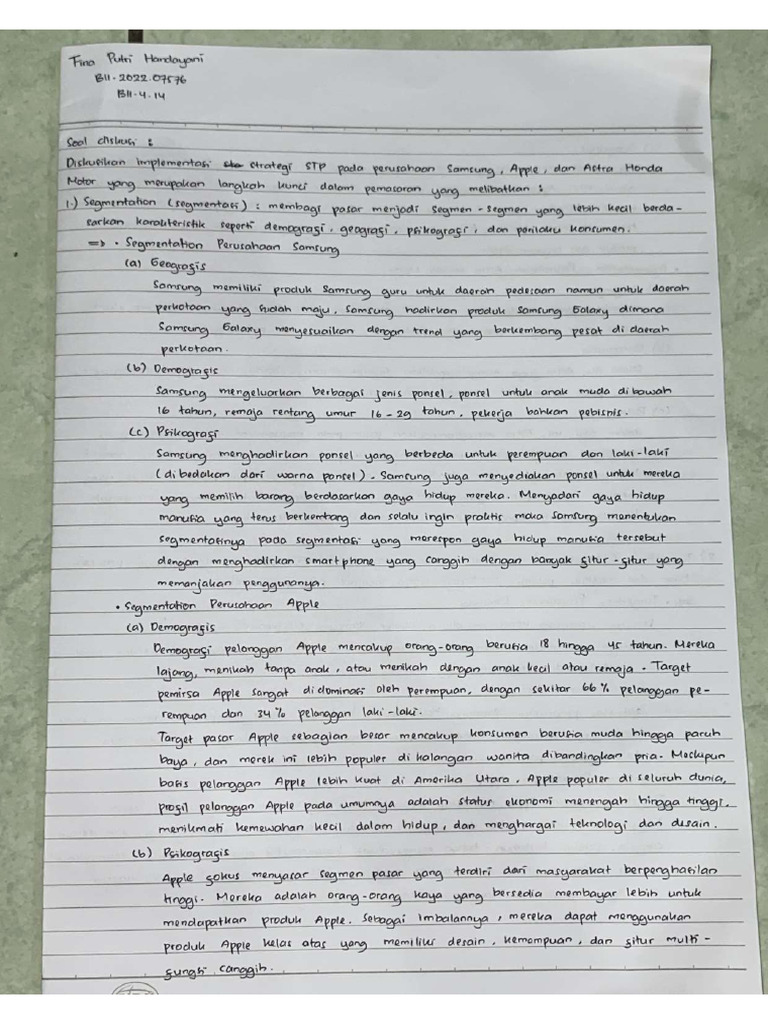 Fina Putri Handayani
B11.2022.07576
B11.4.14
Soal diskusi :
Diskusikan implementasi strategi STP pada perusahaan Samsung, Apple, dan Astra Honda
Motor yang merupakan langkah kunci dalam pemasaran yang melibatkan :
1.) Segmentation (segmentasi) : membagi pasar menjadi segmen-segmen yang lebih kecil berda-
sarkan karakteristik seperti demografi, geografi, psikografi, dan perilaku konsumen.
=> • Segmentation Perusahaan Samsung
(a) Geografis
Samsung memiliki produk Samsung guru untuk daerah pedesaan namun untuk daerah
perkotaan yang sudah maju, Samsung hadirkan produk Samsung Galaxy dimana
Samsung Galaxy menyesuaikan dengan trend yang berkembang pesat di daerah
perkotaan.
(b) Demografis
Samsung mengeluarkan berbagai jenis ponsel, ponsel untuk anak muda dibawah
16 tahun, remaja rentang umur 16-29 tahun, pekerja bahkan pebisnis.
(c) Psikografi
Samsung menghadirkan ponsel yang berbeda untuk perempuan dan laki-laki
(dibedakan dari warna ponsel). Samsung juga menyediakan ponsel untuk mereka
yang memilih barang berdasarkan gaya hidup mereka. Menyadari gaya hidup
manusia yang terus berkembang dan selalu ingin praktis maka Samsung menentukan
segmentasinya pada segmentasi yang merespon gaya hidup manusia tersebut
dengan menghadirkan smartphone yang canggih dengan banyak fitur-fitur yang
memanjakan penggunanya.
• Segmentation Perusahaan Apple
(a) Demografis
Demografi pelanggan Apple mencakup orang-orang berusia 18 hingga 45 tahun. Mereka
lajang, menikah tanpa anak, atau menikah dengan anak kecil atau remaja. Target
pemirsa Apple sangat didominasi oleh perempuan, dengan sekitar 66% pelanggan pe-
rempuan dan 34% pelanggan laki-laki.
Target pasar Apple sebagian besar mencakup konsumen berusia muda hingga paruh
baya, dan merek ini lebih populer di kalangan wanita dibandingkan pria. Meskipun
basis pelanggan Apple lebih kuat di Amerika Utara, Apple populer di seluruh dunia,
profil pelanggan Apple pada umumnya adalah status ekonomi menengah hingga tinggi,
menikmati kemewahan kecil dalam hidup, dan menghargai teknologi dan disain.
(b) Psikografis
Apple fokus menyasar segmen pasar yang terdiri dari masyarakat berpenghasilan
tinggi. Mereka adalah orang-orang kaya yang bersedia membayar lebih untuk
mendapatkan produk Apple. Sebagai imbalannya, mereka dapat menggunakan
produk Apple kelas atas yang memiliki desain, kemampuan, dan fitur multi-
fungsi canggih.